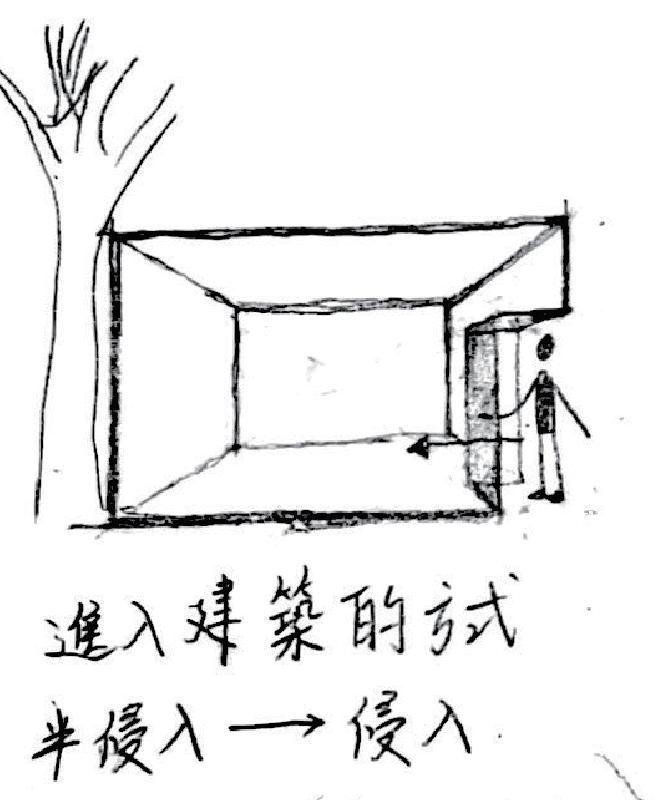 進入建築的方式
半侵入→侵入